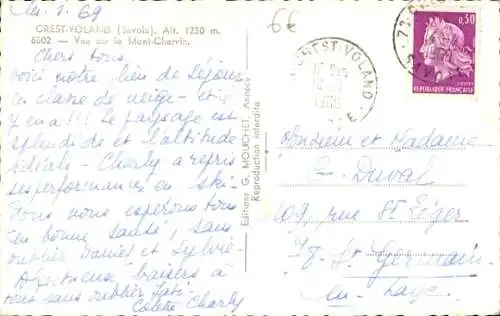 CREST-VOLAND (Savoie). Alt. 1230 m.
6002 — Vue sur le Mont-Charvin.
6€
Chers tous
voici notre lieu de séjour
en classe de neige - et il
y en a !!! Le paysage est
splendide et l'altitude
idéale - Charly a repris
ses performances en ski -
Vous nous espérons tous
en bonne santé, sans
oublier Daniel et Sylvie -
Affectueux baisers à
tous sans oublier
Colette Charly
Editions G. MOUCHET, Annecy
Reproduction interdite
CREST-VOLAND
0,30
REPUBLIQUE FRANÇAISE
Monsieur et Madame
Duval
109, rue St Léger
78. St Germain
en Laye